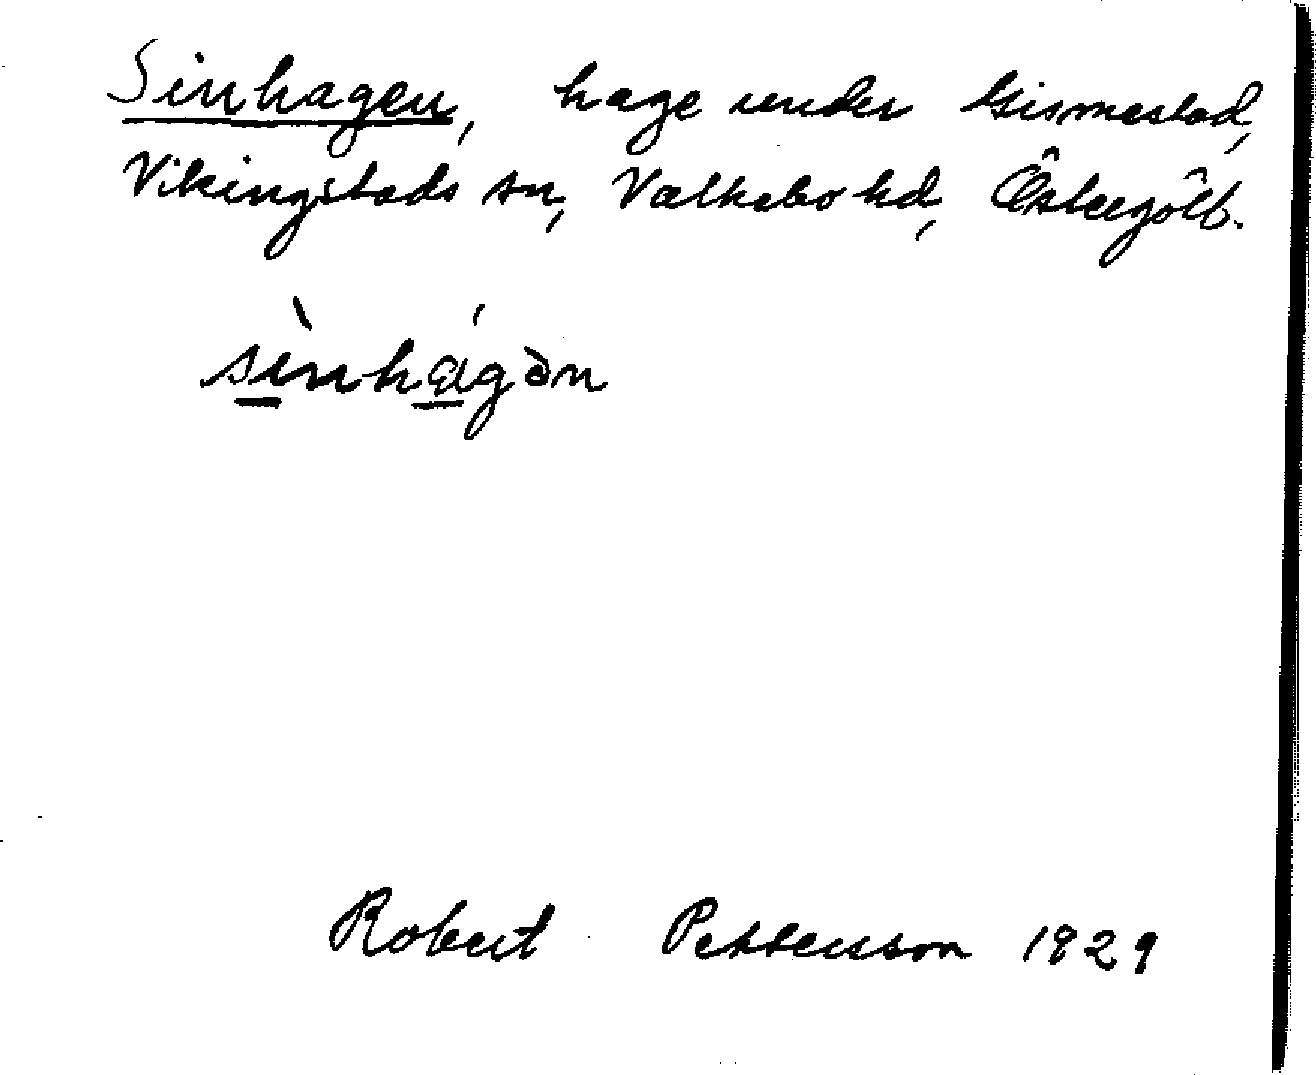 Sinhagen, hage under Gismestad,
Vikingstads sn, Valkebo hd, Östergötl.
sìnhágən
Robert Pettersson 1929